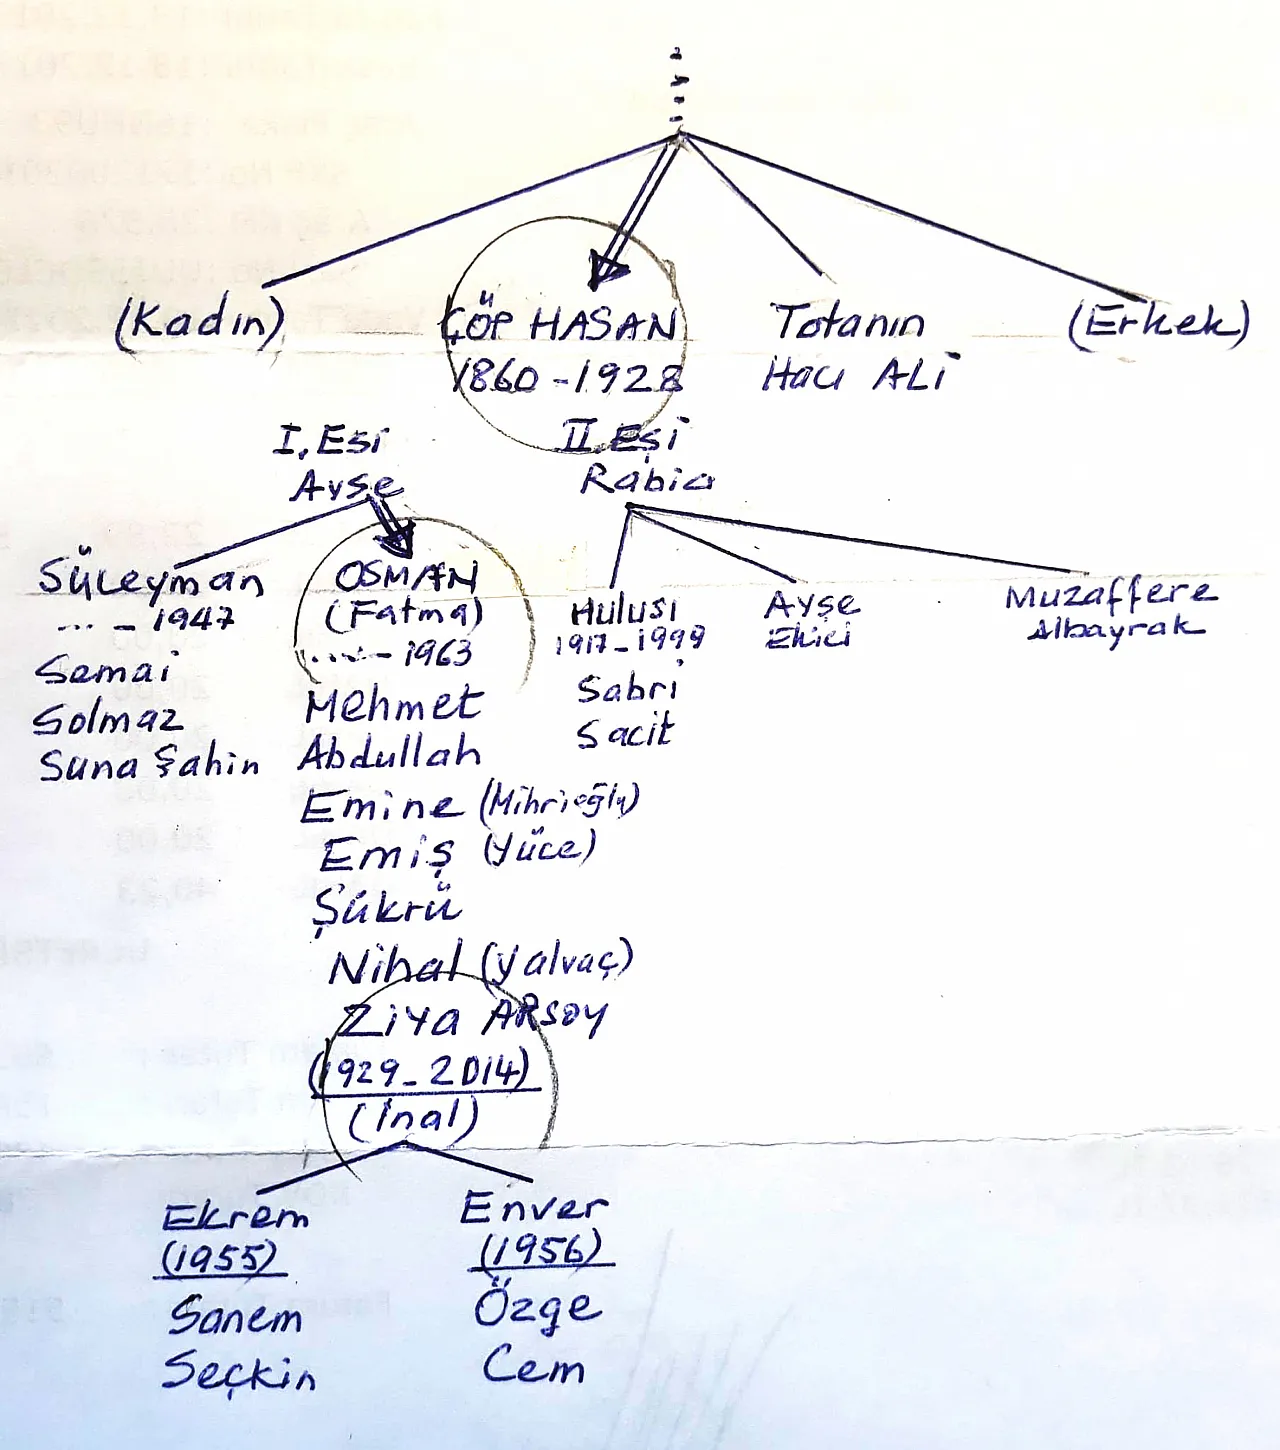 (Kadın)
ÇÖP HASAN
1860-1928
Totanın
Hacı ALİ
(Erkek)
I. Eşi
Ayşe
II. Eşi
Rabia
Süleyman
... - 1947
Semai
Solmaz
Suna Şahin
OSMAN
(Fatma)
..... - 1963
Mehmet
Abdullah
Emine (Mihrioğlu)
Emiş (Yüce)
Şükrü
Nihal (Yalvaç)
Ziya ARSOY
(1929-2014)
(İnal)
Hulusi
1917-1999
Sabri
Sacit
Ayşe
Ekici
Muzaffere
Albayrak
Ekrem
(1955)
Sanem
Seçkin
Enver
(1956)
Özge
Cem